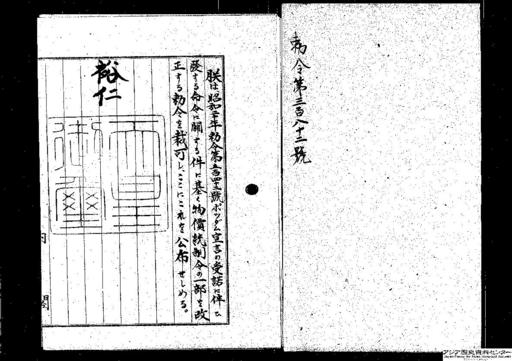 勅令第三百八十三號
朕は昭和二十年勅令第五百四十二號ポツダム宣言の受諾に伴ひ
發する命令に關する件に基く物價統制令の一部を改
正する勅令を裁可し、ここにこれを公布せしめる。
裕仁
内
閣
アジア歴史資料センター